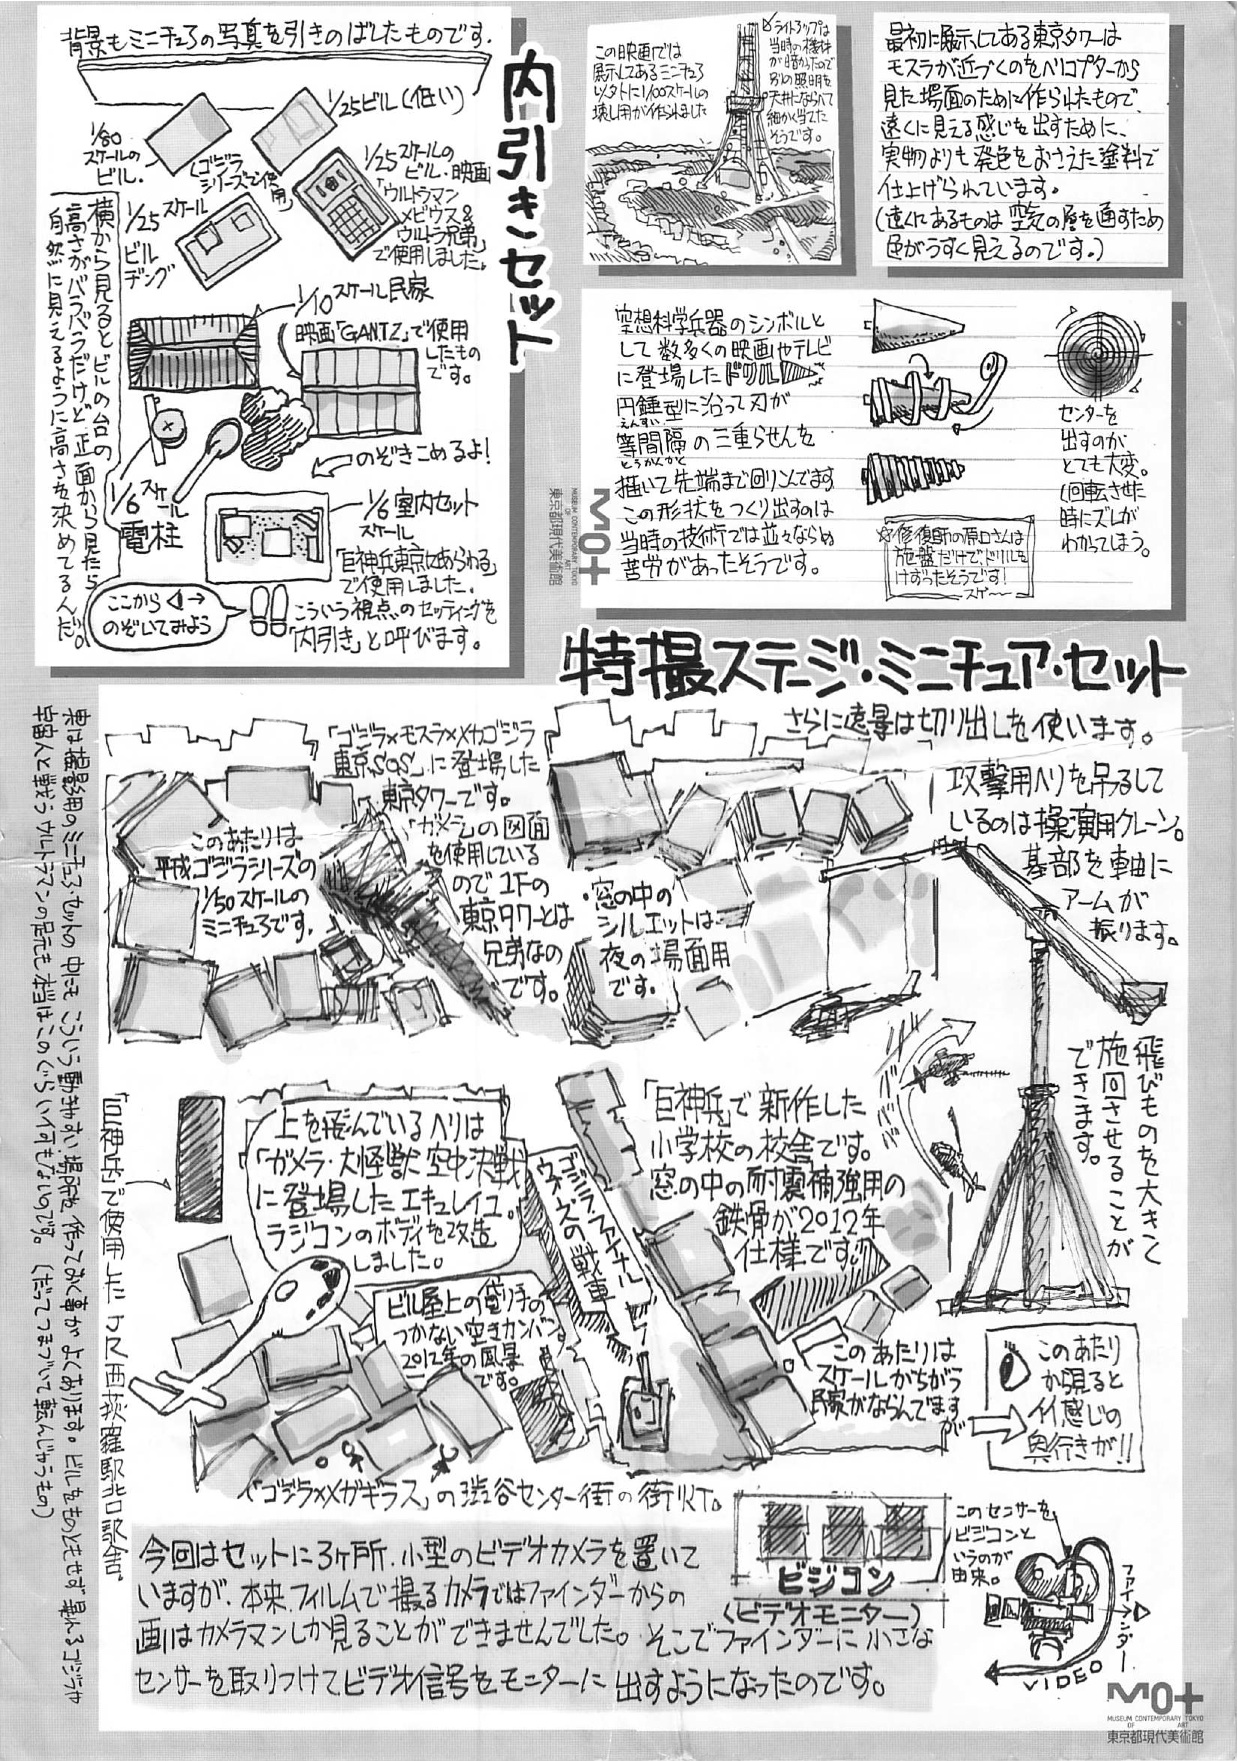 背景もミニチュアの写真を引きのばしたものです。
内引きセット
1/25ビル(低い)
1/80
スケールの
ビル.
(ゴジラ
シリーズで使用)
1/25スケールの
ビル・映画
「ウルトラマン
メビウス&
ウルトラ兄弟」
で使用しました。
1/25スケール
ビル
ヂング
横から見るとビルの台の
高さがバラバラだけど正面から見たら
自然に見えるように高さを決めてるんだ。
1/10スケール民家
映画「GANTZ」で使用
したもの
です。
のぞきこめるよ!
1/6スケール
電柱
1/6室内セット
スケール
「巨神兵東京にあらわる」
で使用しました。
ここから
のぞいてみよう
こういう視点のセッティングを
「内引き」と呼びます。
この映画では
展示してあるミニチュア
以外に1/100スケールの
壊し用が作られました
ライトアップは
当時の機材
が暗かったので
別の照明を
天井にならべて
細かく当てた
そうです。
最初に展示してある東京タワーは
モスラが近づくのをヘリコプターから
見た場面のために作られたもので、
遠くに見える感じを出すために、
実物よりも発色をおさえた塗料で
仕上げられています。
(遠くにあるものは空気の層を通すため
色がうすく見えるのです。)
空想科学兵器のシンボルと
して数多くの映画やテレビ
に登場したドリル
円錐型に沿って刃が
えんすい
等間隔の三重らせんを
とうかんかく
描いて先端まで回りこんでます
この形状をつくり出すのは
当時の技術では並々ならぬ
苦労があったそうです。
センターを
出すのが
とても大変。
(回転させた
時にズレが
わかってしまう。
☆修復師の原口さんは
旋盤だけでドリルを
けずったそうです!
スゲ〜〜
MO+
MUSEUM OF CONTEMPORARY ART TOKYO
東京都現代美術館
特撮ステージ・ミニチュア・セット
「ゴジラ×モスラ×メカゴジラ
東京SOS」に登場した
東京タワーです。
「ガメラ」の図面
を使用している
ので1Fの
東京タワーとは
兄弟なの
です。
さらに遠景は切り出しを使います。
このあたりは
平成ゴジラシリーズの
1/50スケールの
ミニチュアです。
窓の中の
シルエットは
夜の場面用
です。
攻撃用ヘリを吊るして
いるのは操演用クレーン。
基部を軸に
アームが
振ります。
飛びものを大きく
施回させることが
できます。
上を飛んでいるヘリは
「ガメラ・大怪獣空中決戦」
に登場したエキュレイユ。
ラジコンのボディを改造
しました。
ゴジラファイナル
ウォーズの戦車
「巨神兵」で新作した
小学校の校舎です。
窓の中の耐震補強用の
鉄骨が2012年
仕様です。
ビル屋上の借り手の
つかない空きカンバン。
2012年の風景
です。
このあたりは
スケールがちがう
民家がならんでます
が
このあたり
から見ると
イイ感じの
奥行きが!!
「ゴジラ××メガギラス」の渋谷センター街の街灯。
「巨神兵」で使用したJR西荻羅駅北口駅舎。
実は撮影用のミニチュアセットの中にはこういう動きやすい場所を作っておく事がよくあります。ビルをものともせず暴れるゴジラや
宇宙人と戦うウルトラマンの足元も本当はこのぐらい何もないのです。(だってつまづいて転んじゃうもの)
今回はセットに3ヶ所、小型のビデオカメラを置いて
いますが、本来、フィルムで撮るカメラではファインダーからの
画はカメラマンしか見ることができませんでした。そこでファインダーに小さな
センサーを取りつけてビデオ信号をモニターに出すようになったのです。
ビジコン
(ビデオモニター)
このセンサーを
ビジコンと
いうのが
由来。
ファインダー
VIDEO
MO+
MUSEUM OF CONTEMPORARY ART TOKYO
東京都現代美術館